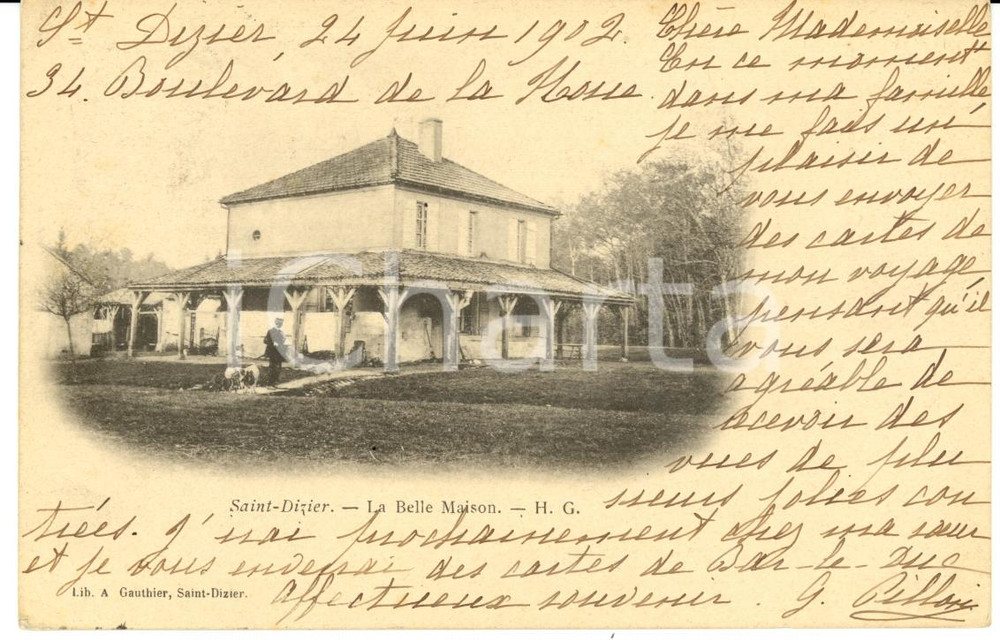 St Dizier, 24 Juin 1902.
34. Boulevard de la Noue.
Chère Mademoiselle
En ce moment
dans ma famille,
je me fais un
plaisir de
vous envoyer
des cartes de
mon voyage,
pensant qu'il
vous sera
agréable de
recevoir des
vues de plu
sieurs jolies con
trées. J'irai prochainement chez ma sœur
et je vous enverrai des cartes de Bar-le-Duc
Affectueux souvenir. G.
Charta
Saint-Dizier. — La Belle Maison. — H. G.
Lib. A Gauthier, Saint-Dizier.